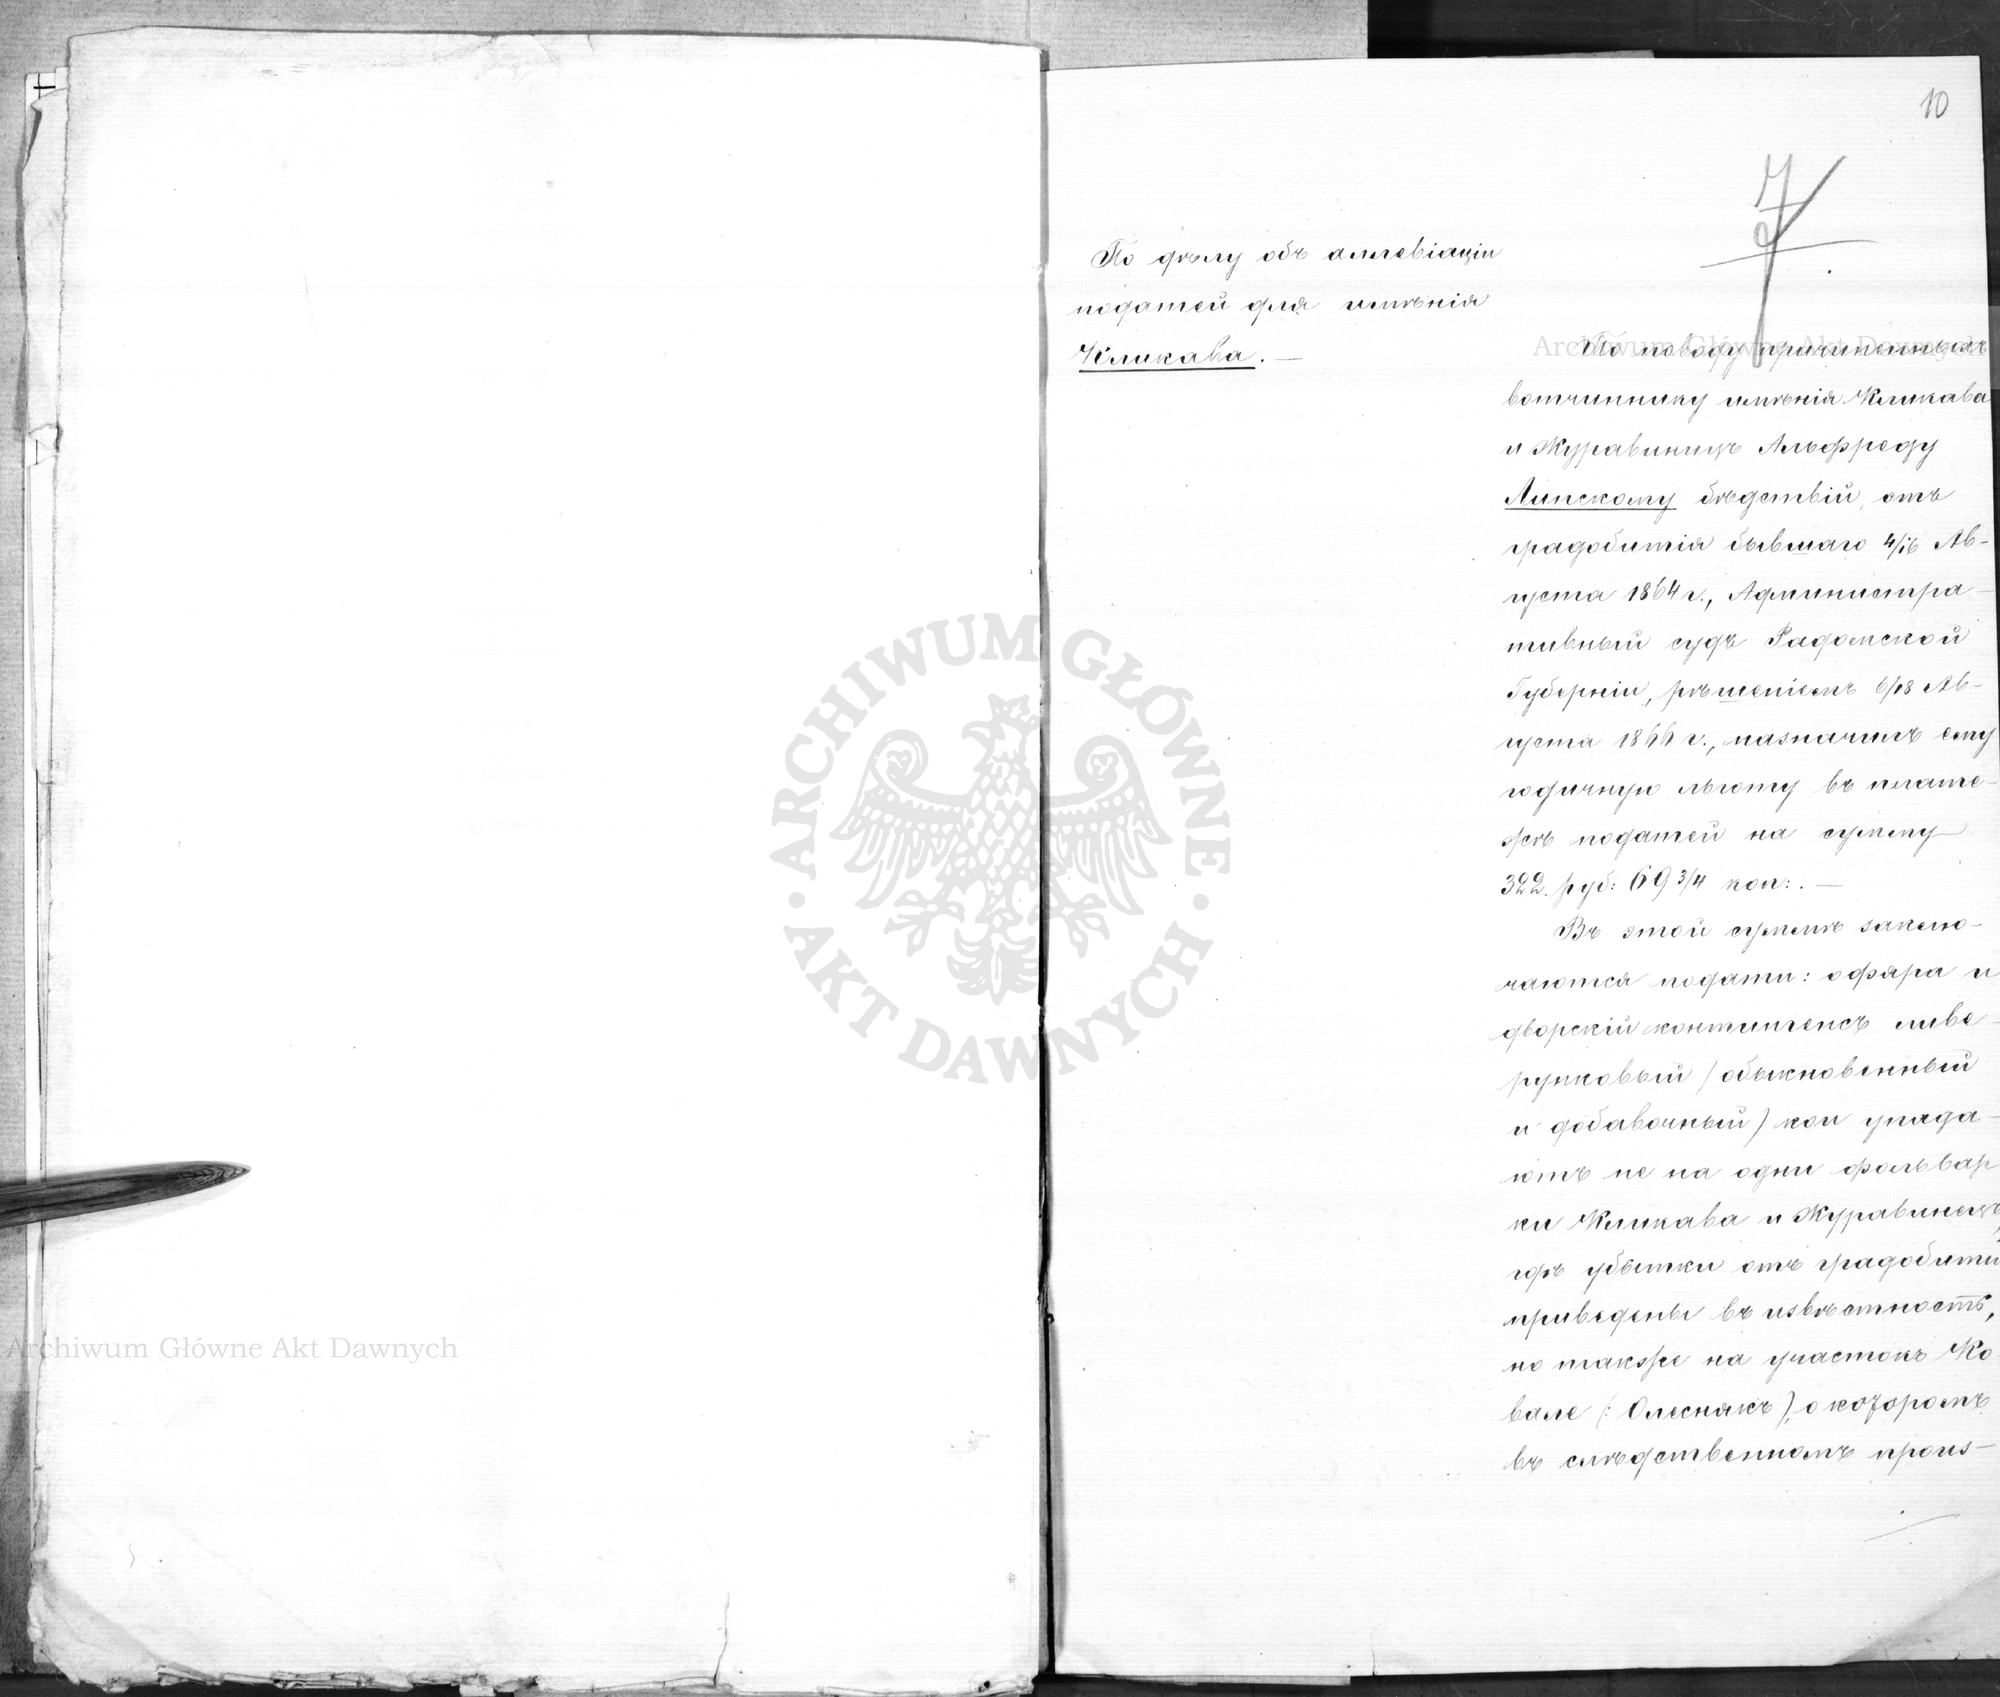 10
По дѣлу объ аллевіаціи
податей для имѣнія
Кликава. —
По поводу причиненныхъ
вотчиннику имѣнія Кликава
и Журавинецъ Альфреду
Липскому бѣдствій, отъ
градобитія бывшаго 4/16 Ав-
густа 1864 г., Администра-
тивный судъ Радомской
Губерніи, рѣшеніемъ 6/18 Ав-
густа 1866 г., назначилъ ему
годичную льготу въ плате-
жѣ податей на сумму
322. руб: 69 3/4 коп:. —
Въ этой суммѣ заклю-
чаются подати: офяра и
дворскій контингенсъ ливе-
рунковый (обыкновенный
и добавочный) кои упада-
ютъ не на одни фольвар
ки Кликава и Журавинецъ,
гдѣ убытки отъ градобитія
приведены въ извѣстность,
но также на участокъ Ко
вале (: Олеснякъ), о которомъ
въ слѣдственномъ произ-
ARCHIWUM GŁÓWNE
AKT DAWNYCH
Archiwum Główne Akt Dawnych
Archiwum Główne Akt Dawnych